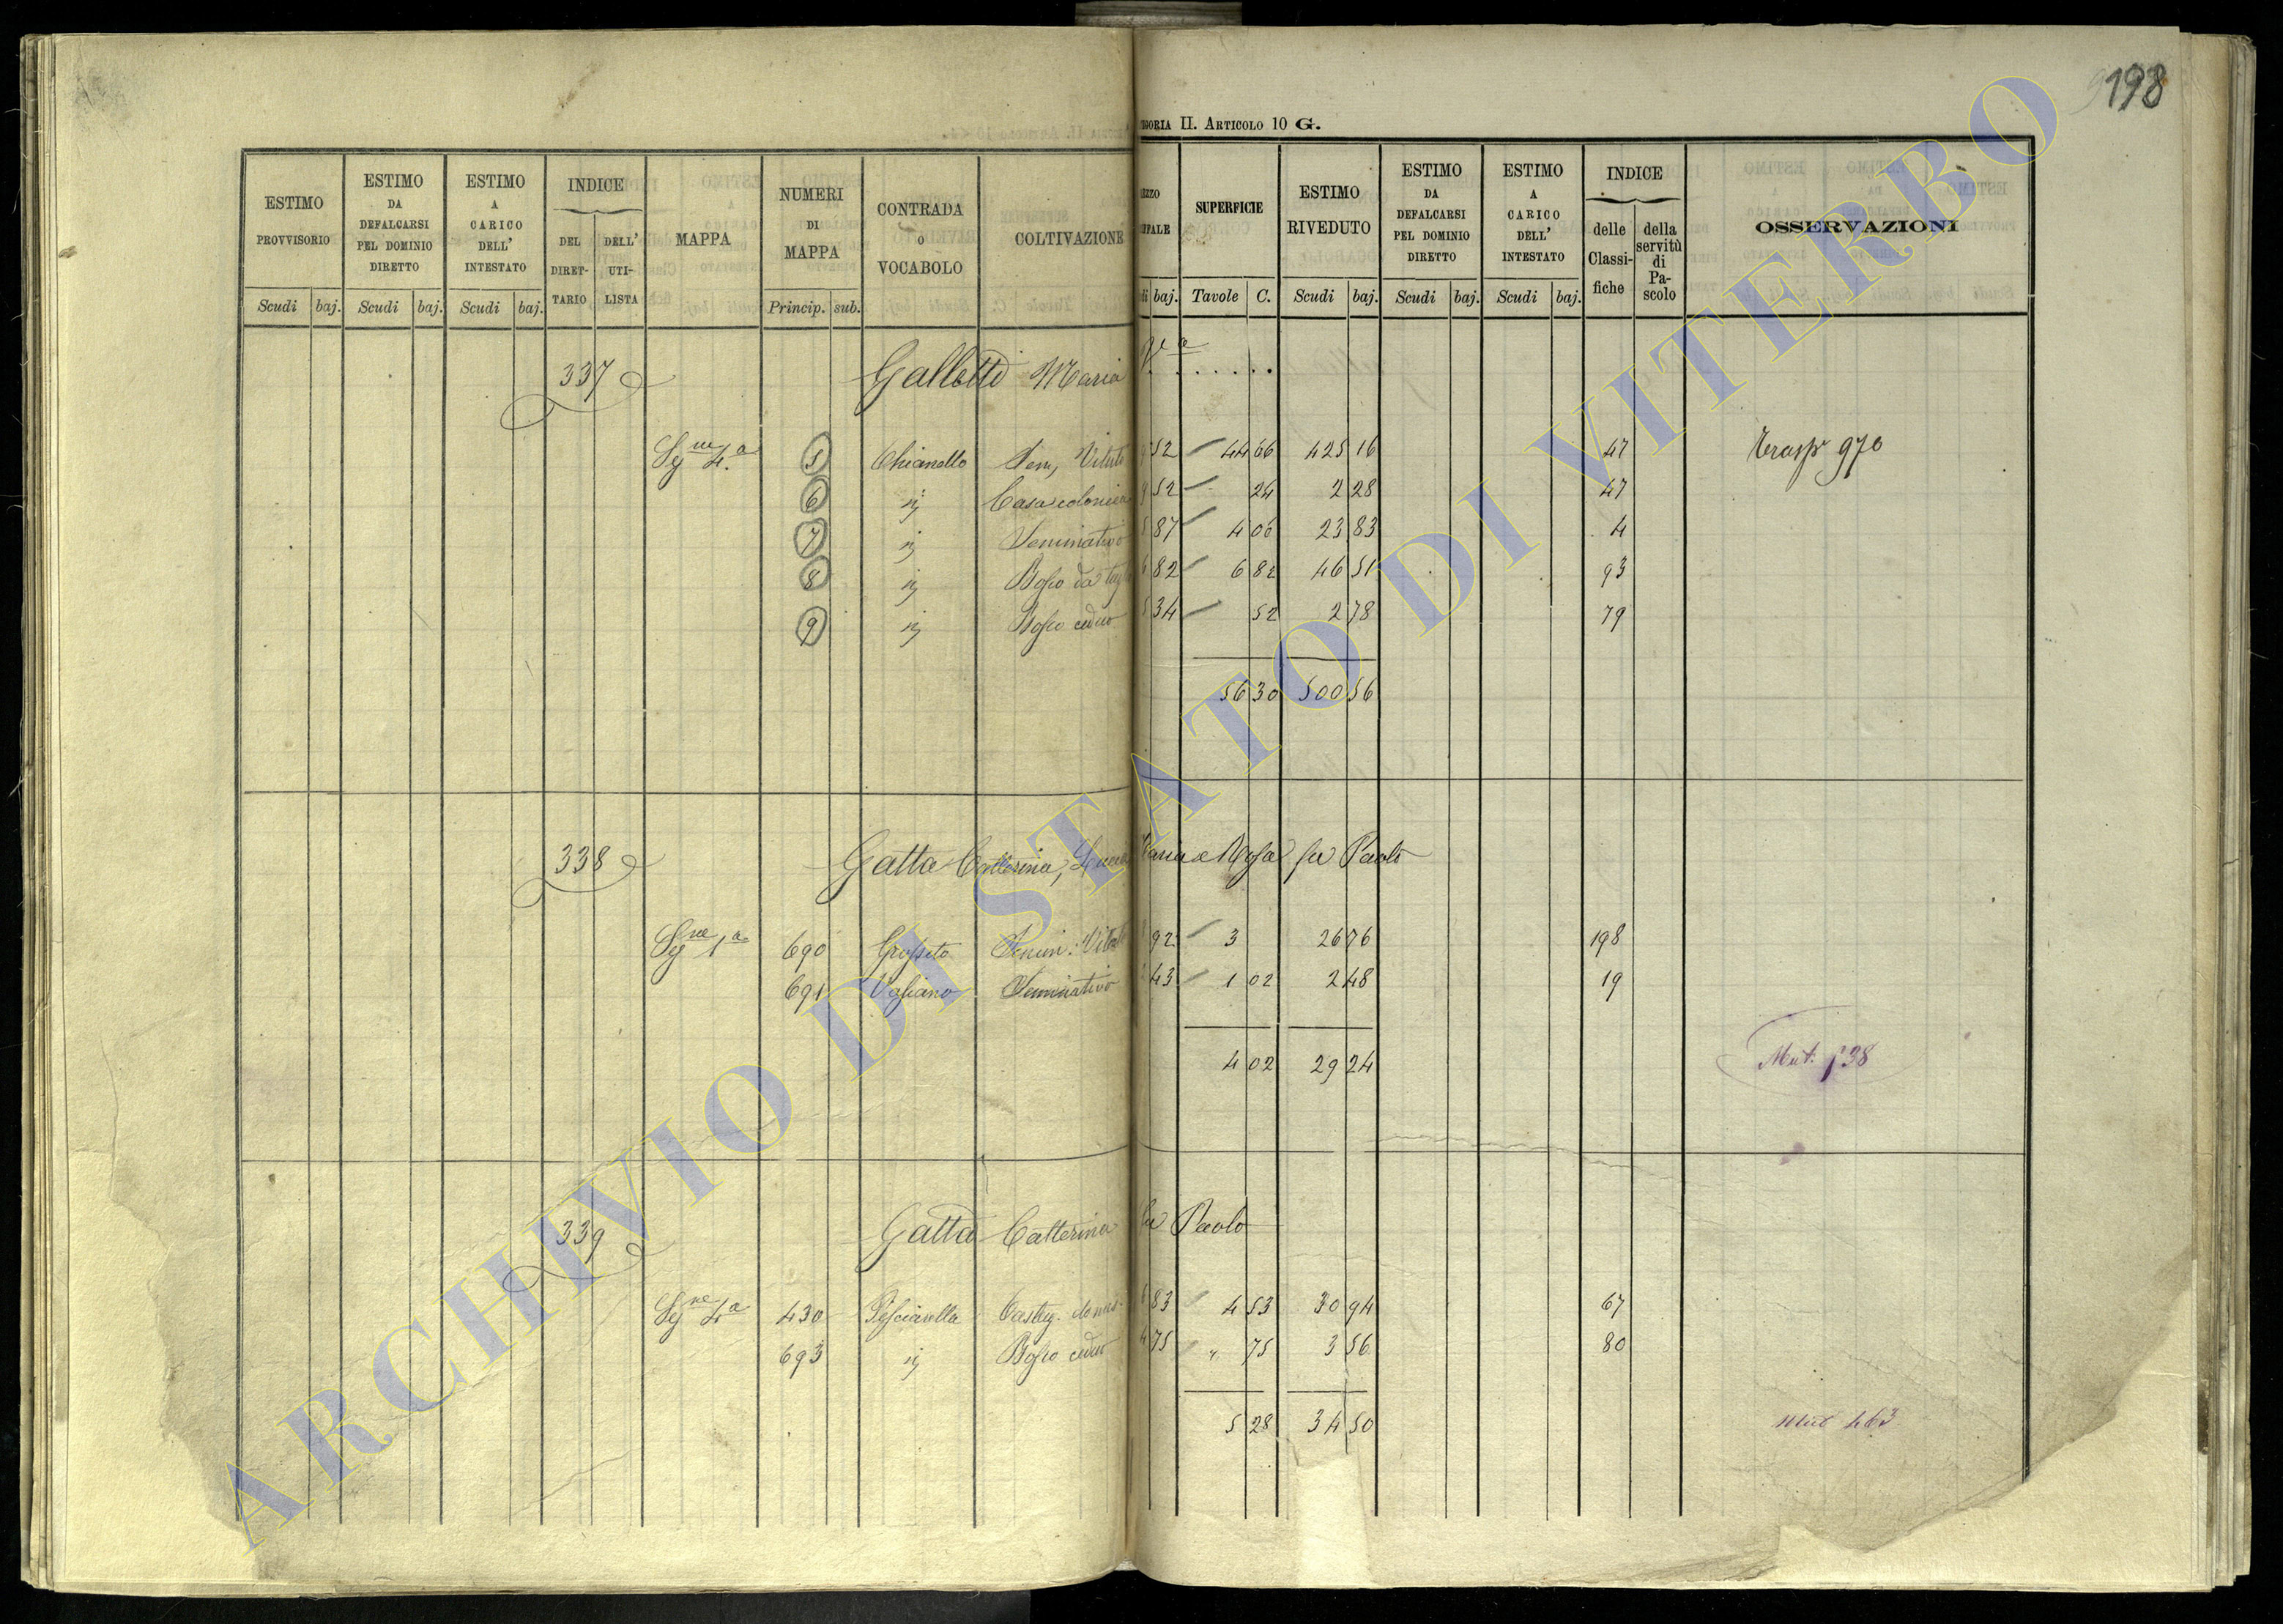 198
GORIA II. ARTICOLO 10 G.
ESTIMO PROVVISORIO
ESTIMO DA DEFALCARSI PEL DOMINIO DIRETTO
ESTIMO A CARICO DELL' INTESTATO
INDICE
DEL DIRET-TARIO
DELL' UTI-LISTA
MAPPA
NUMERI DI MAPPA
CONTRADA O VOCABOLO
COLTIVAZIONE
SUPERFICIE
ESTIMO RIVEDUTO
ESTIMO DA DEFALCARSI PEL DOMINIO DIRETTO
ESTIMO A CARICO DELL' INTESTATO
INDICE
delle Classi-fiche
della servitù di Pa-scolo
OSSERVAZIONI
Scudi baj. Scudi baj. Scudi baj. Princip. sub. baj. Tavole C. Scudi baj. Scudi baj. Scudi baj.
337 Galletti Maria
Sg.ne 4.a 5 Chianello Sem. Vitato 52 44 66 425 16 47 Trasp 970
6 ij Casa colonica 52 24 2 28 47
7 ij Seminativo 87 4 06 23 83 4
8 ij Bosco da taglio 82 6 82 46 51 93
9 ij Bosco ceduo 34 52 2 78 79
56 30 500 56
338 Gatta Catterina, Lucia Maria e Rosa fu Paolo
Sg.ne 1a 690 Grosseto Semin. Vitato 92 3 26 76 198
691 Vogliano Seminativo 43 1 02 2 48 19
4 02 29 24
Mut. 738
339 Gatta Catterina fu Paolo
Sg.ne 4a 430 Pescianella Castag. domes. 83 4 53 30 94 67
693 ij Bosco ceduo 75 " 75 3 56 80
5 28 34 50
Mut 463
ARCHIVIO DI STATO DI VITERBO